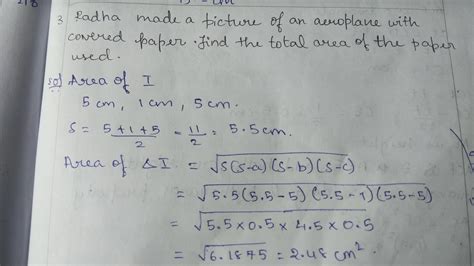 3 Radha made a picture of an aeroplane with
covered paper. find the total area of the paper
used.
sol Area of I
5 cm, 1 cm, 5 cm.
S = 5+1+5/2 = 11/2 = 5.5 cm.
Area of △ I = √S(S-a)(S-b)(S-c)
= √5.5(5.5-5)(5.5-1)(5.5-5)
= √5.5×0.5×4.5×0.5
= √6.1875 = 2.48 cm².